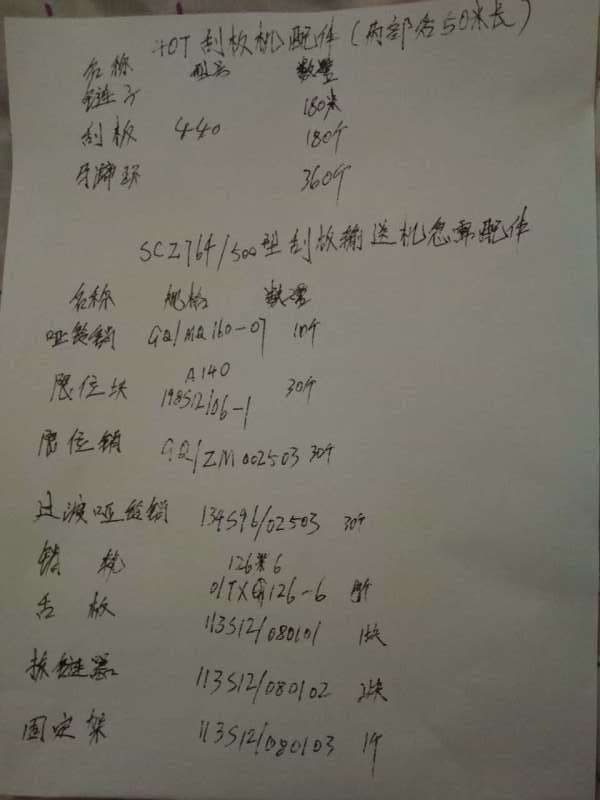 40T 刮板机配件(两部各50米长)
名称 型号 数量
链子 180米
刮板 440 180个
马蹄环 360个
SCZ764/500型刮板输送机急需配件
名称 规格 数量
哑铃销 GQ/MQ160-07 10个
限位块 A140 198S12/06-1 30个
限位销 GQ/ZM002503 30个
过渡哑铃销 134S96/02503 30个
126米6
01TXQ126-6
舌板 113S12/080101 1块
拆链器 113S12/080102 2块
固定架 113S12/080103 1个